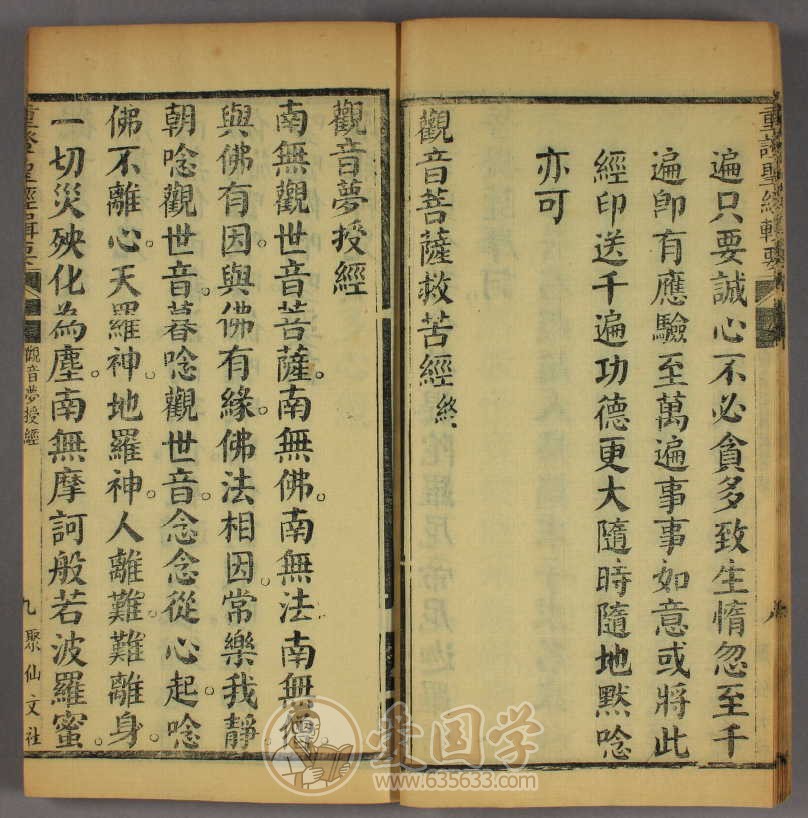 重訂聖經輯要
遍只要誠心不必貪多致生惰忽至千
遍卽有應驗至萬遍事事如意或將此
經印送千遍功德更大隨時隨地默唸
亦可
觀音菩薩救苦經終
觀音夢授經
南無觀世音菩薩。南無佛。南無法。南無僧
與佛有因。與佛有緣。佛法相因。常樂我靜
朝唸觀世音。暮唸觀世音。念念從心起。唸
佛不離心。天羅神。地羅神。人離難。難離身。
一切災殃化為塵。南無摩訶般若波羅蜜
觀音夢授經
九 聚仙文社
爱国学
www.635633.com